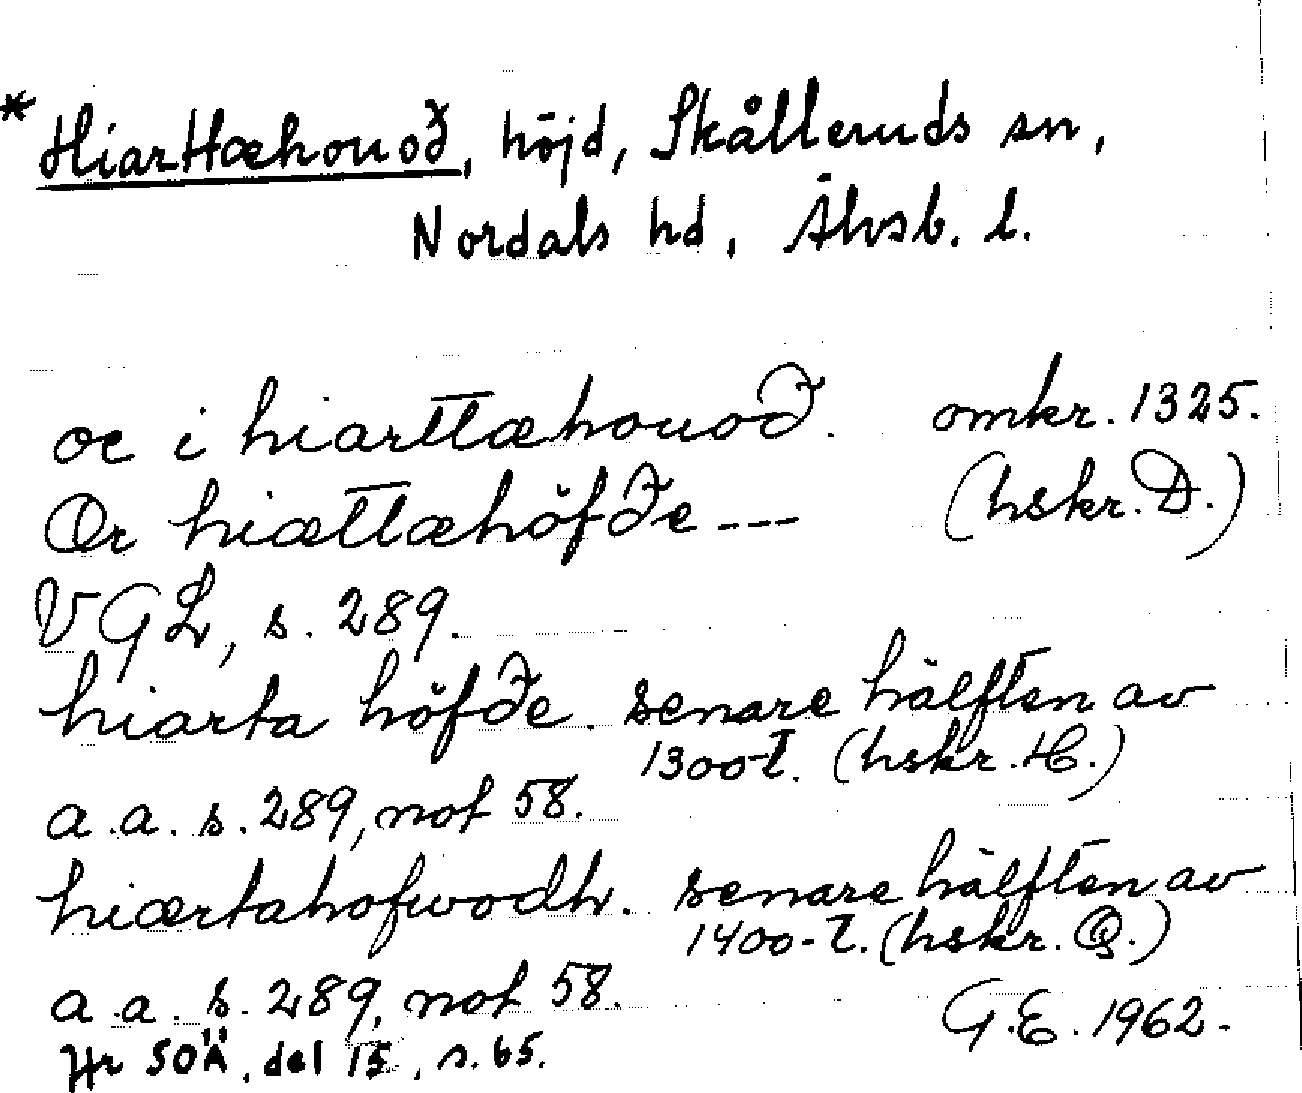 *Hiarttæhouoð, höjd, Skålleruds sn,
Nordals hd, Älvsb. l.
oc i hiarttæhouoð. omkr. 1325.
Or hiættæhöfðe --- (hskr. D.)
VGL, s. 289.
hiarta höfðe. senare hälften av
1300-t. (hskr. H.)
a.a. s. 289, not 58.
hiærtahofwodh. senare hälften av
1400-t. (hskr. Q.)
a.a. s. 289, not 58.
G.E. 1962.
Jfr SOÄ, del 15, s. 65.